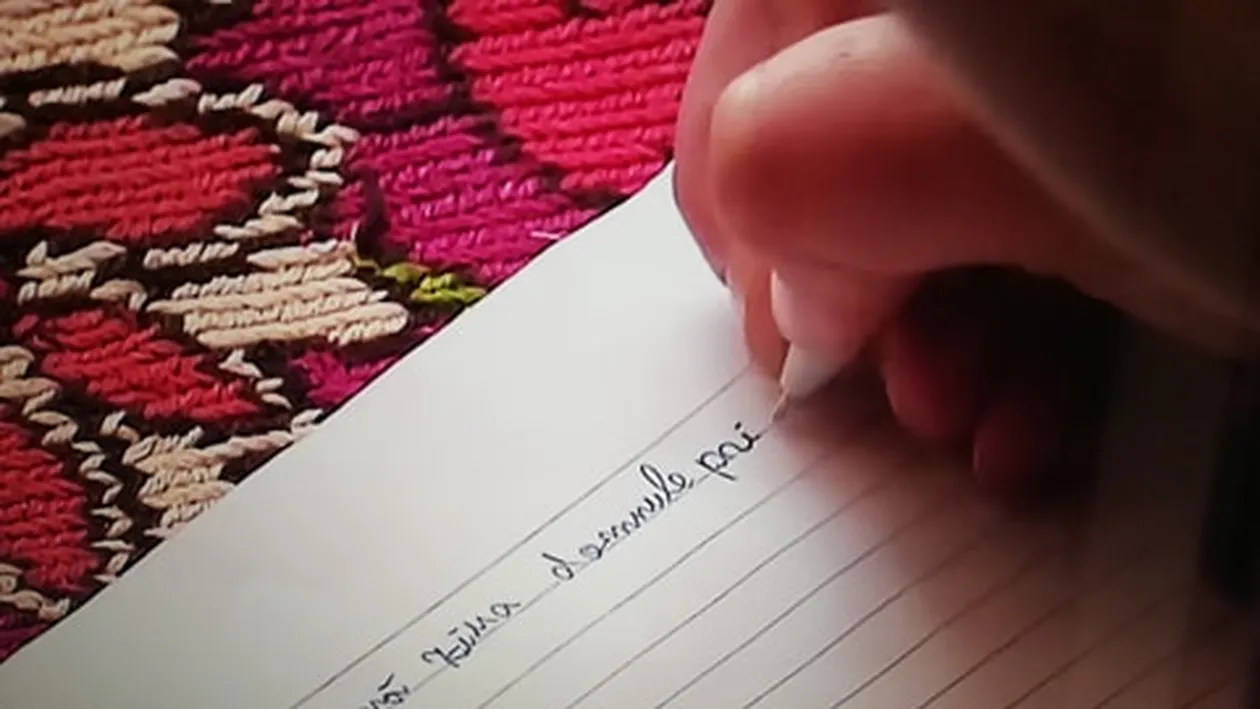 nă ziua domnule pri